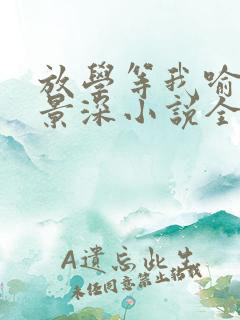 放學等我喻
景深小説全
A遺忘此生
未经同意禁止粘我